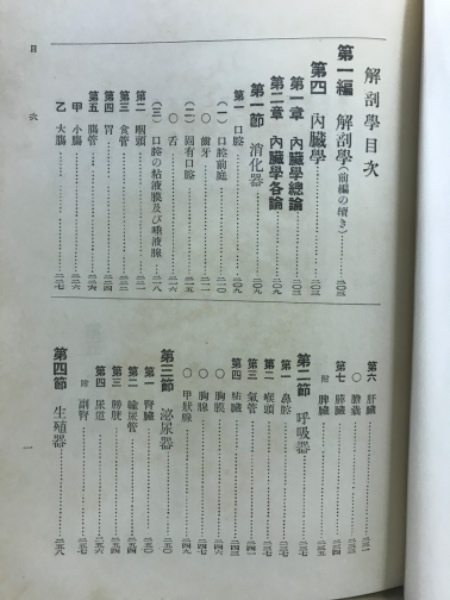 解剖學目次
第一編 解剖學(前編の續き)……二〇三
第四 內臟學……二〇三
第一章 內臟學總論……二〇三
第二章 內臟學各論……二〇九
第一節 消化器……二〇九
第一 口腔……二〇九
(一) 口腔前庭……二一〇
○ 齒牙……二一一
(二) 固有口腔……二一五
○ 舌……二一六
(三) 口腔の粘液膜及び唾液腺……二一八
第二 咽頭……二二一
第三 食管……二二二
第四 胃……二二三
第五 腸管……二二六
甲 小腸……二二六
乙 大腸……二二七
第六 肝臟……二三一
○ 膽囊……二三三
第七 膵臟……二三四
附 脾臟……二三五
第二節 呼吸器……二三七
第一 鼻腔……二三七
第二 喉頭……二三七
第三 氣管……二四一
第四 肺臟……二四三
○ 胸膜……二四六
○ 胸腺……二四七
○ 甲狀腺……二四九
第三節 泌尿器……二五〇
第一 腎臟……二五〇
第二 輸尿管……二五四
第三 膀胱……二五四
第四 尿道……二五六
附 副腎……二五七
第四節 生殖器……二五八
目次
一